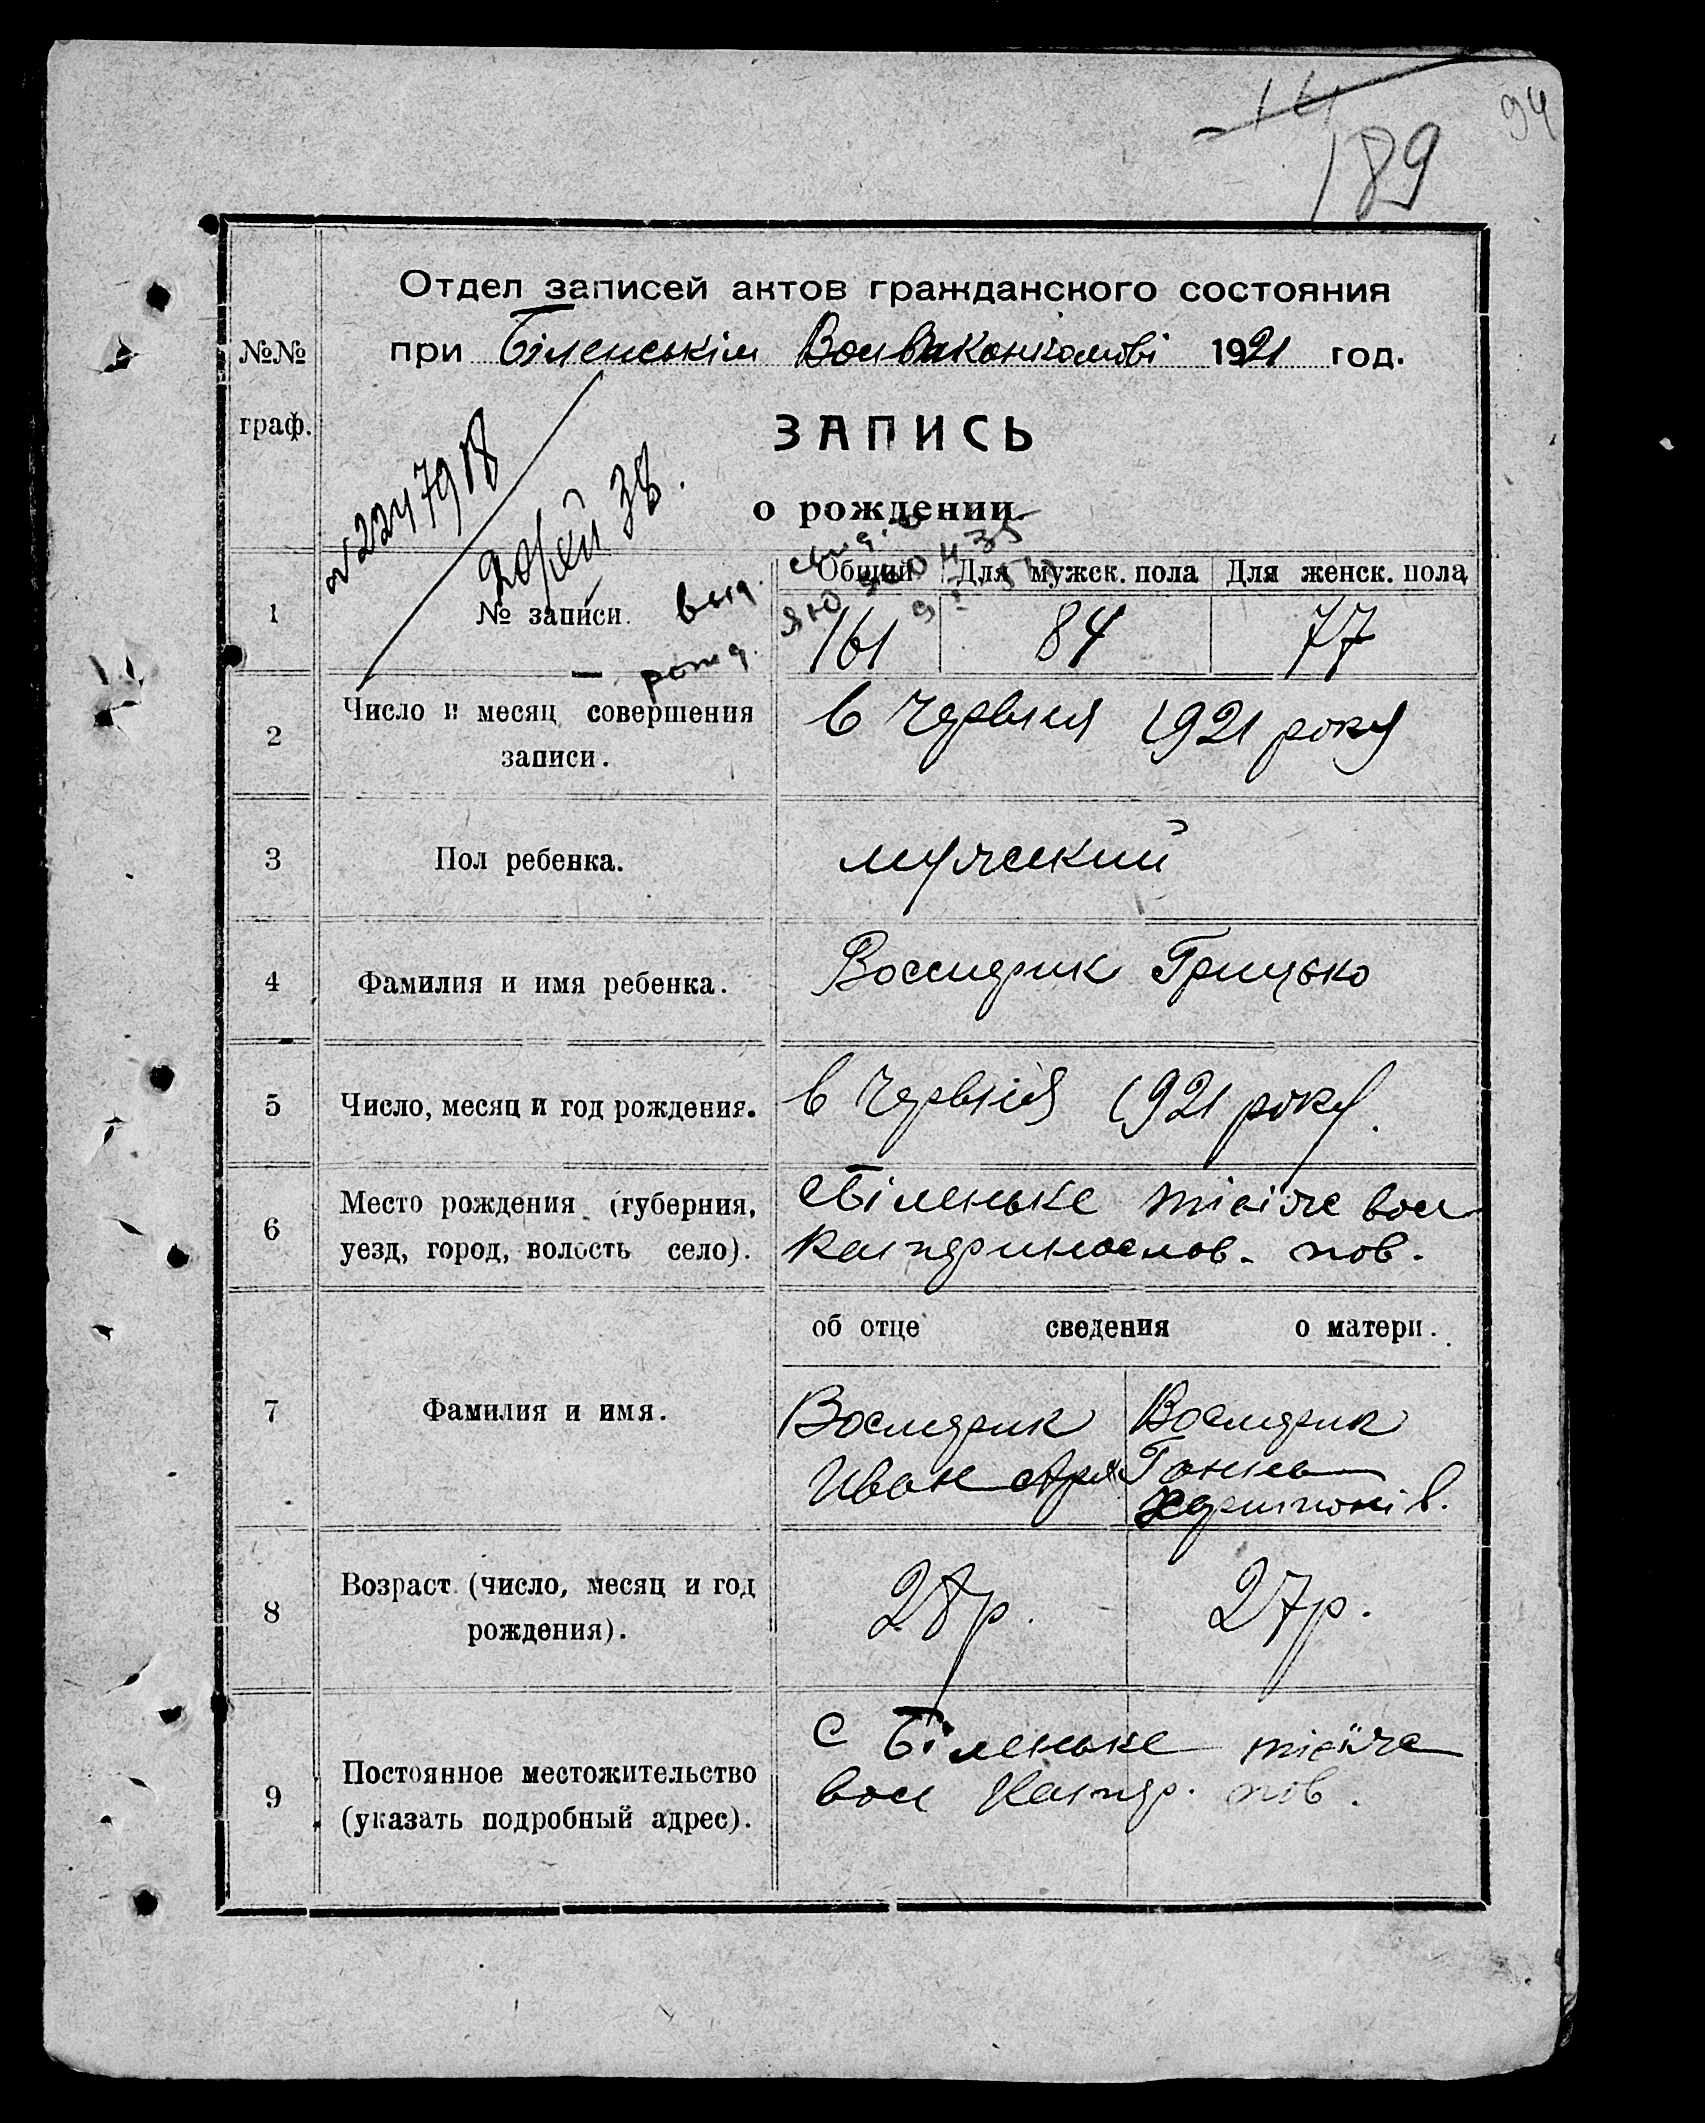 14
94
189
Отдел записей актов гражданского состояния
№№ при Біленськім 1921 год.
граф.
ЗАПИСЬ
о рождении
Общий Для мужск. пола Для женск. пола
1 № записи. 161 84 77
выд.
рожд.
2 Число и месяц совершения 6 Червня 1921 року
записи.
3 Пол ребенка. мужеский
4 Фамилия и имя ребенка. Восмерик Грицько
5 Число, месяц и год рождения. 6 Червня 1921 року.
6 Место рождения (губерния, с Біленьке тієїже вол
уезд, город, волость село). пов.
об отце сведения о матери.
7 Фамилия и имя. Восмерик Восмерик
Иван Ганна
8 Возраст (число, месяц и год 28р. 27р.
рождения).
9 Постоянное местожительство с Біленьке тієїже
(указать подробный адрес). вол пов.